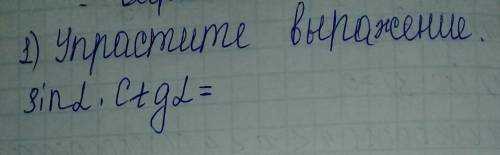 1) Упрастите выражение.
sinα · ctgα =